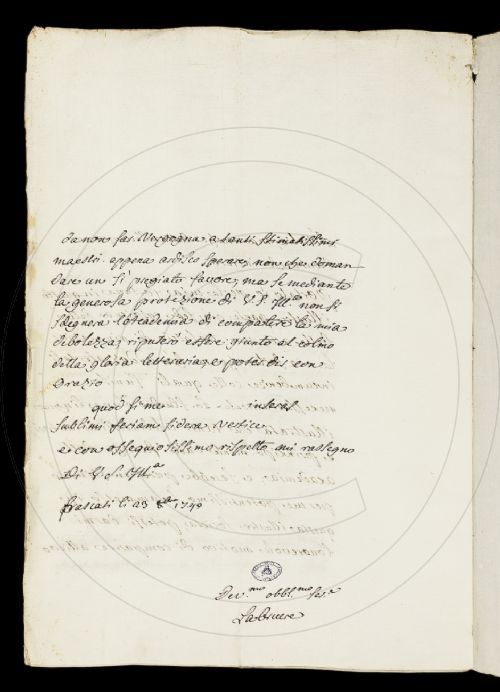 da non far Vergogna a tanti stimatissimi
maestri appena ardisco sperare, non che doman-
dare un sì pregiato favore; ma se mediante
la generosa protezione di V. S. Ill.ma non si
sdegnerà l'Accademia di compatire la mia
debolezza, riputerò essere giunto al colmo
della gloria letteraria, e poter dir con
Orazio
quod si me inseres
sublimi feriam sidera Vertice
e con ossequiosissimo rispetto mi rassegno
Di V. S. Ill.ma
frascati li 23 8bre 1749
Dev.mo obbl.mo Se.e
La Bruere